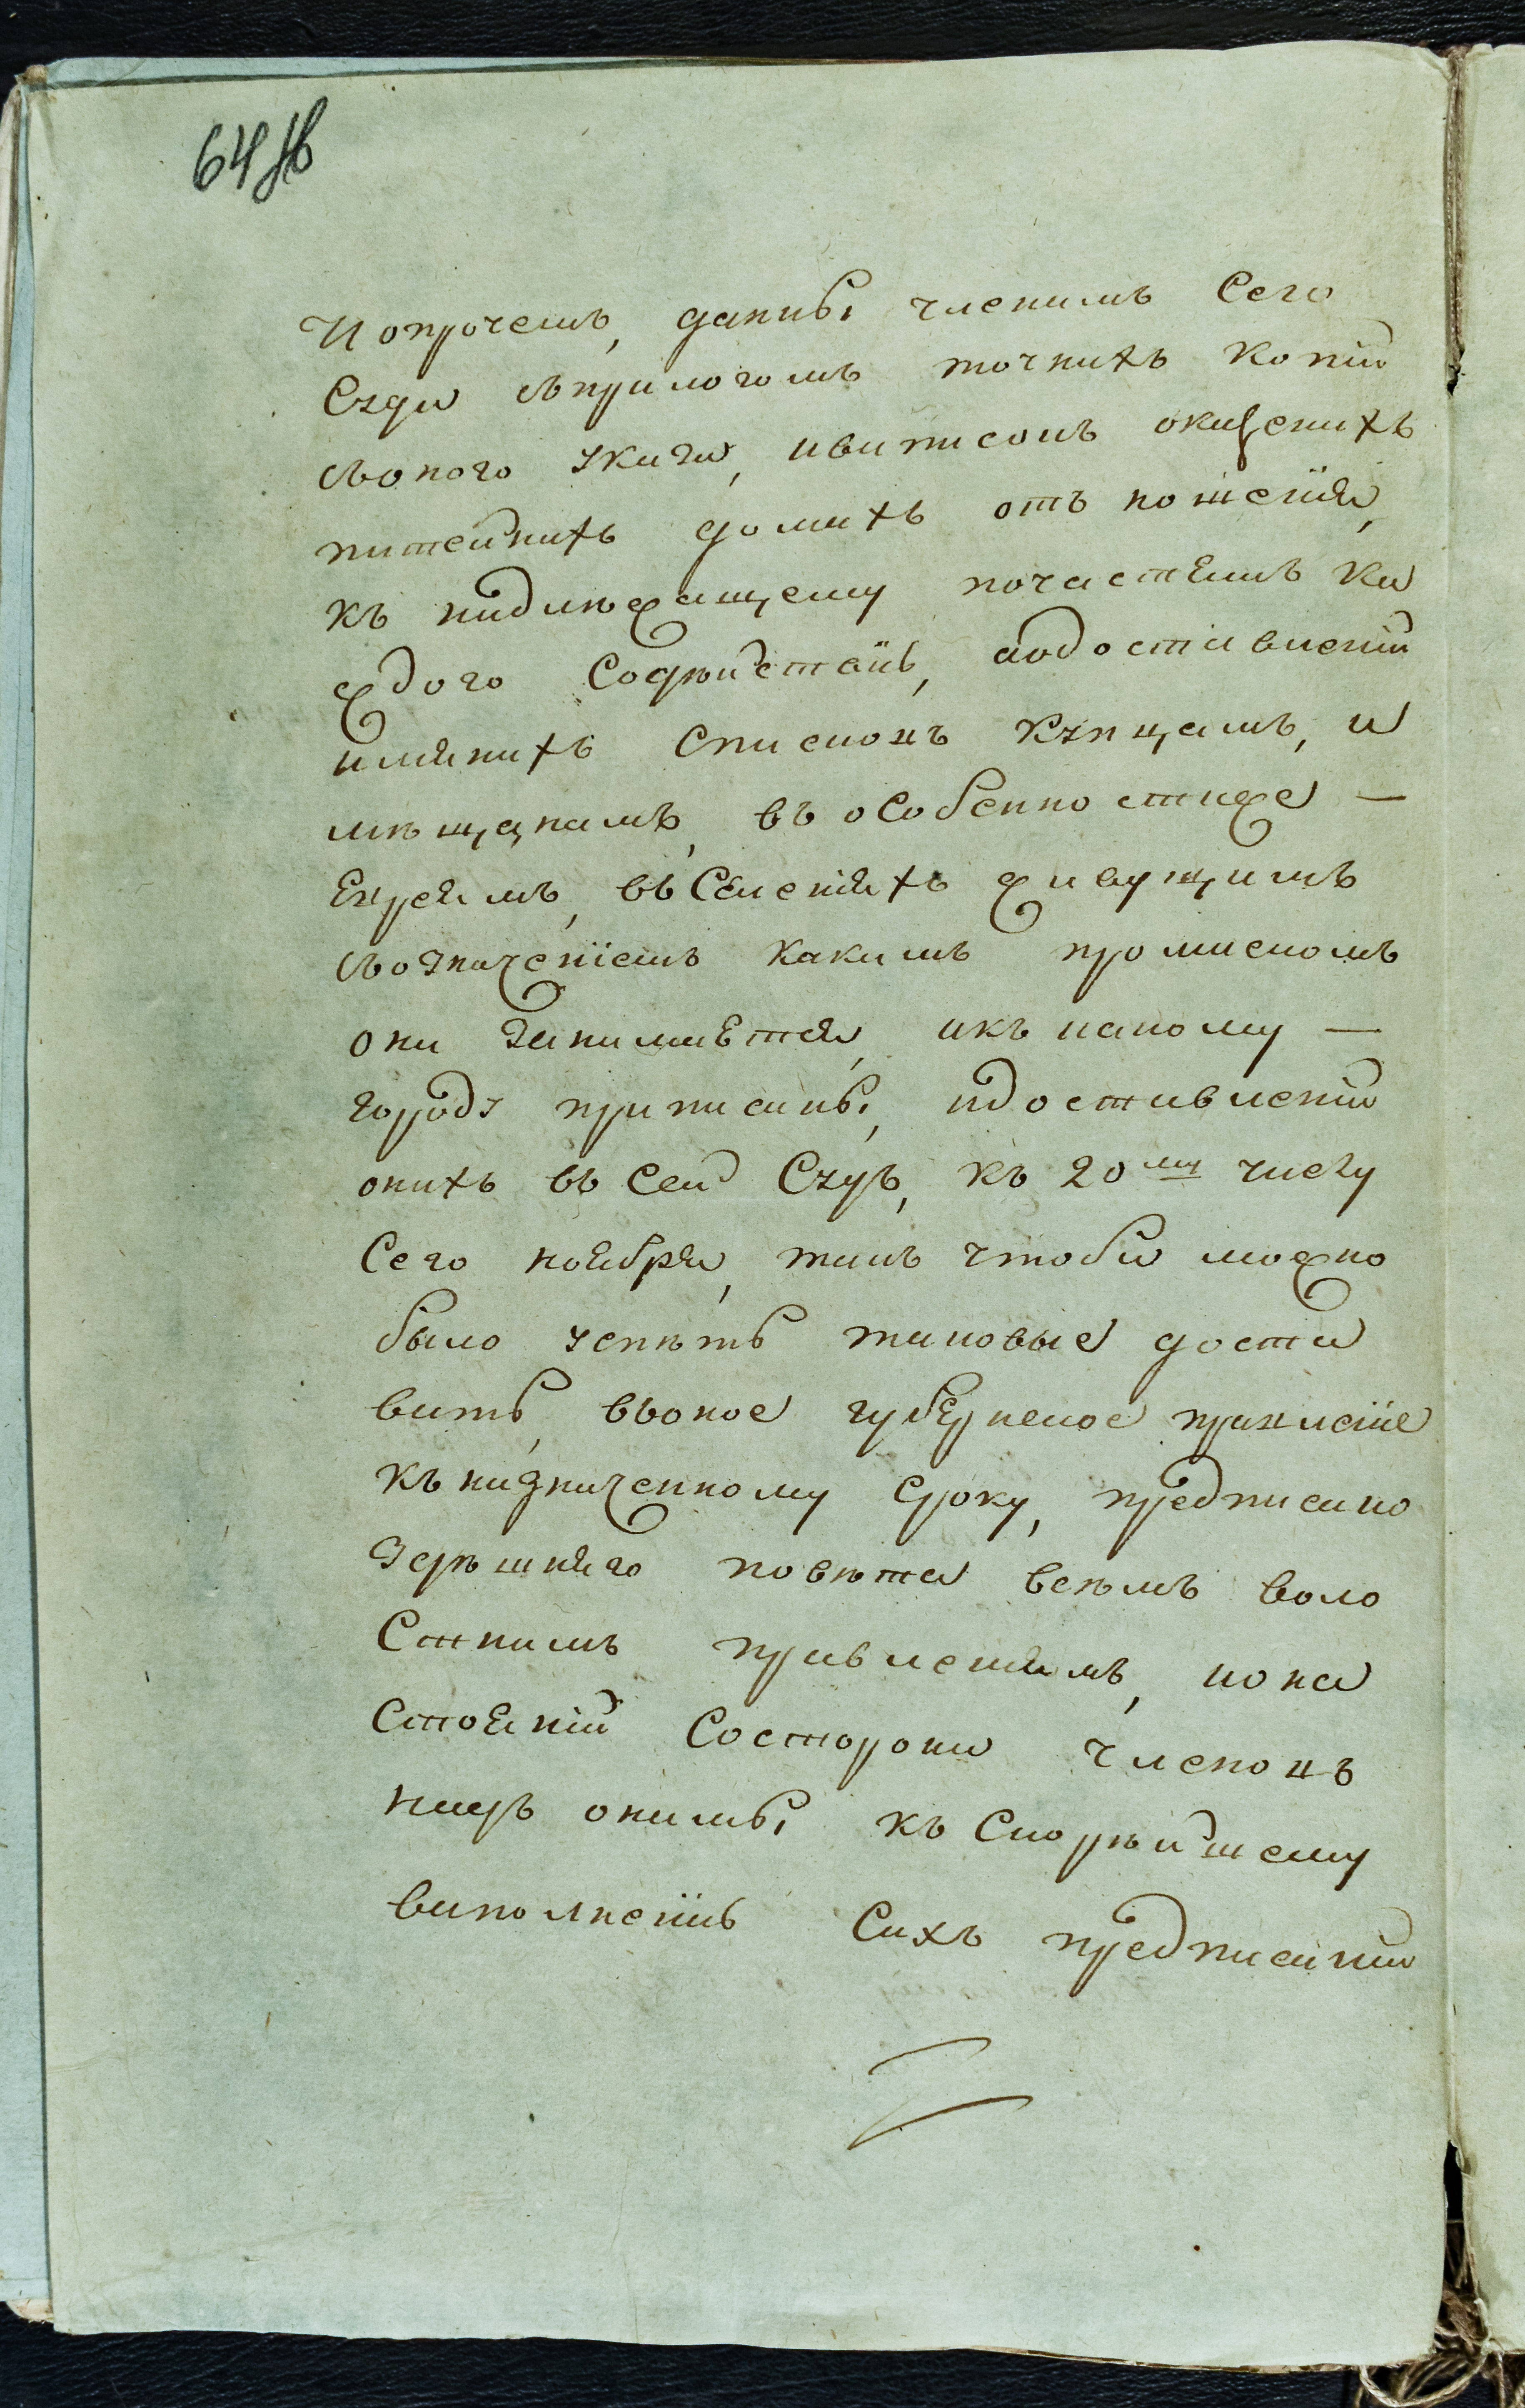 64 об
И опрочемъ, данъ членамъ Сего
Суда съприлогомъ точныхъ копій
съоного указа, ивыписокъ
питейныхъ домахъ отъ ношенія,
къ надлежащему почастямъ ка
ждого Содѣйствію, аодоставленіи
имянныхъ списковъ купцамъ, и
мѣщанамъ, въ особенностиже —
Евреямъ, въ Селеніяхъ живущимъ
съозначеніемъ какимъ промысломъ
они занимаются, икъ какому —
городу приписаны, идоставленіи
оныхъ въ Сей Судъ, къ 20му числу
Сего ноября, такъ чтобы можно
было успѣть таковые доста
вить, въоное губернское правленіе
къ назначенному Сроку, предписано
здѣшняго повѣта всѣмъ воло
Стнымъ правленіямъ, иона
Стояніи Состороны членовъ
надъ онымы къ Скорѣйшему
выполненію Сихъ предписаніи